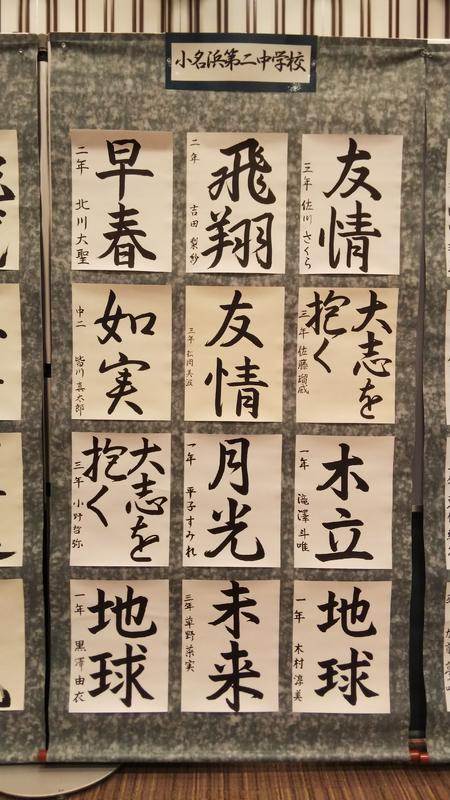 小名浜第二中学校
友情
三年 佐川 さくら
飛翔
二年 吉田 梨紗
早春
二年 北川 大聖
大志を
抱く
三年 佐藤瑠威
友情
三年 松岡美波
如実
中二 皆川真太郎
木立
一年 滝澤斗唯
月光
一年 平子すみれ
大志を
抱く
三年 小野哲弥
地球
一年 木村淳美
未来
三年 草野菜実
地球
一年 黒澤由衣